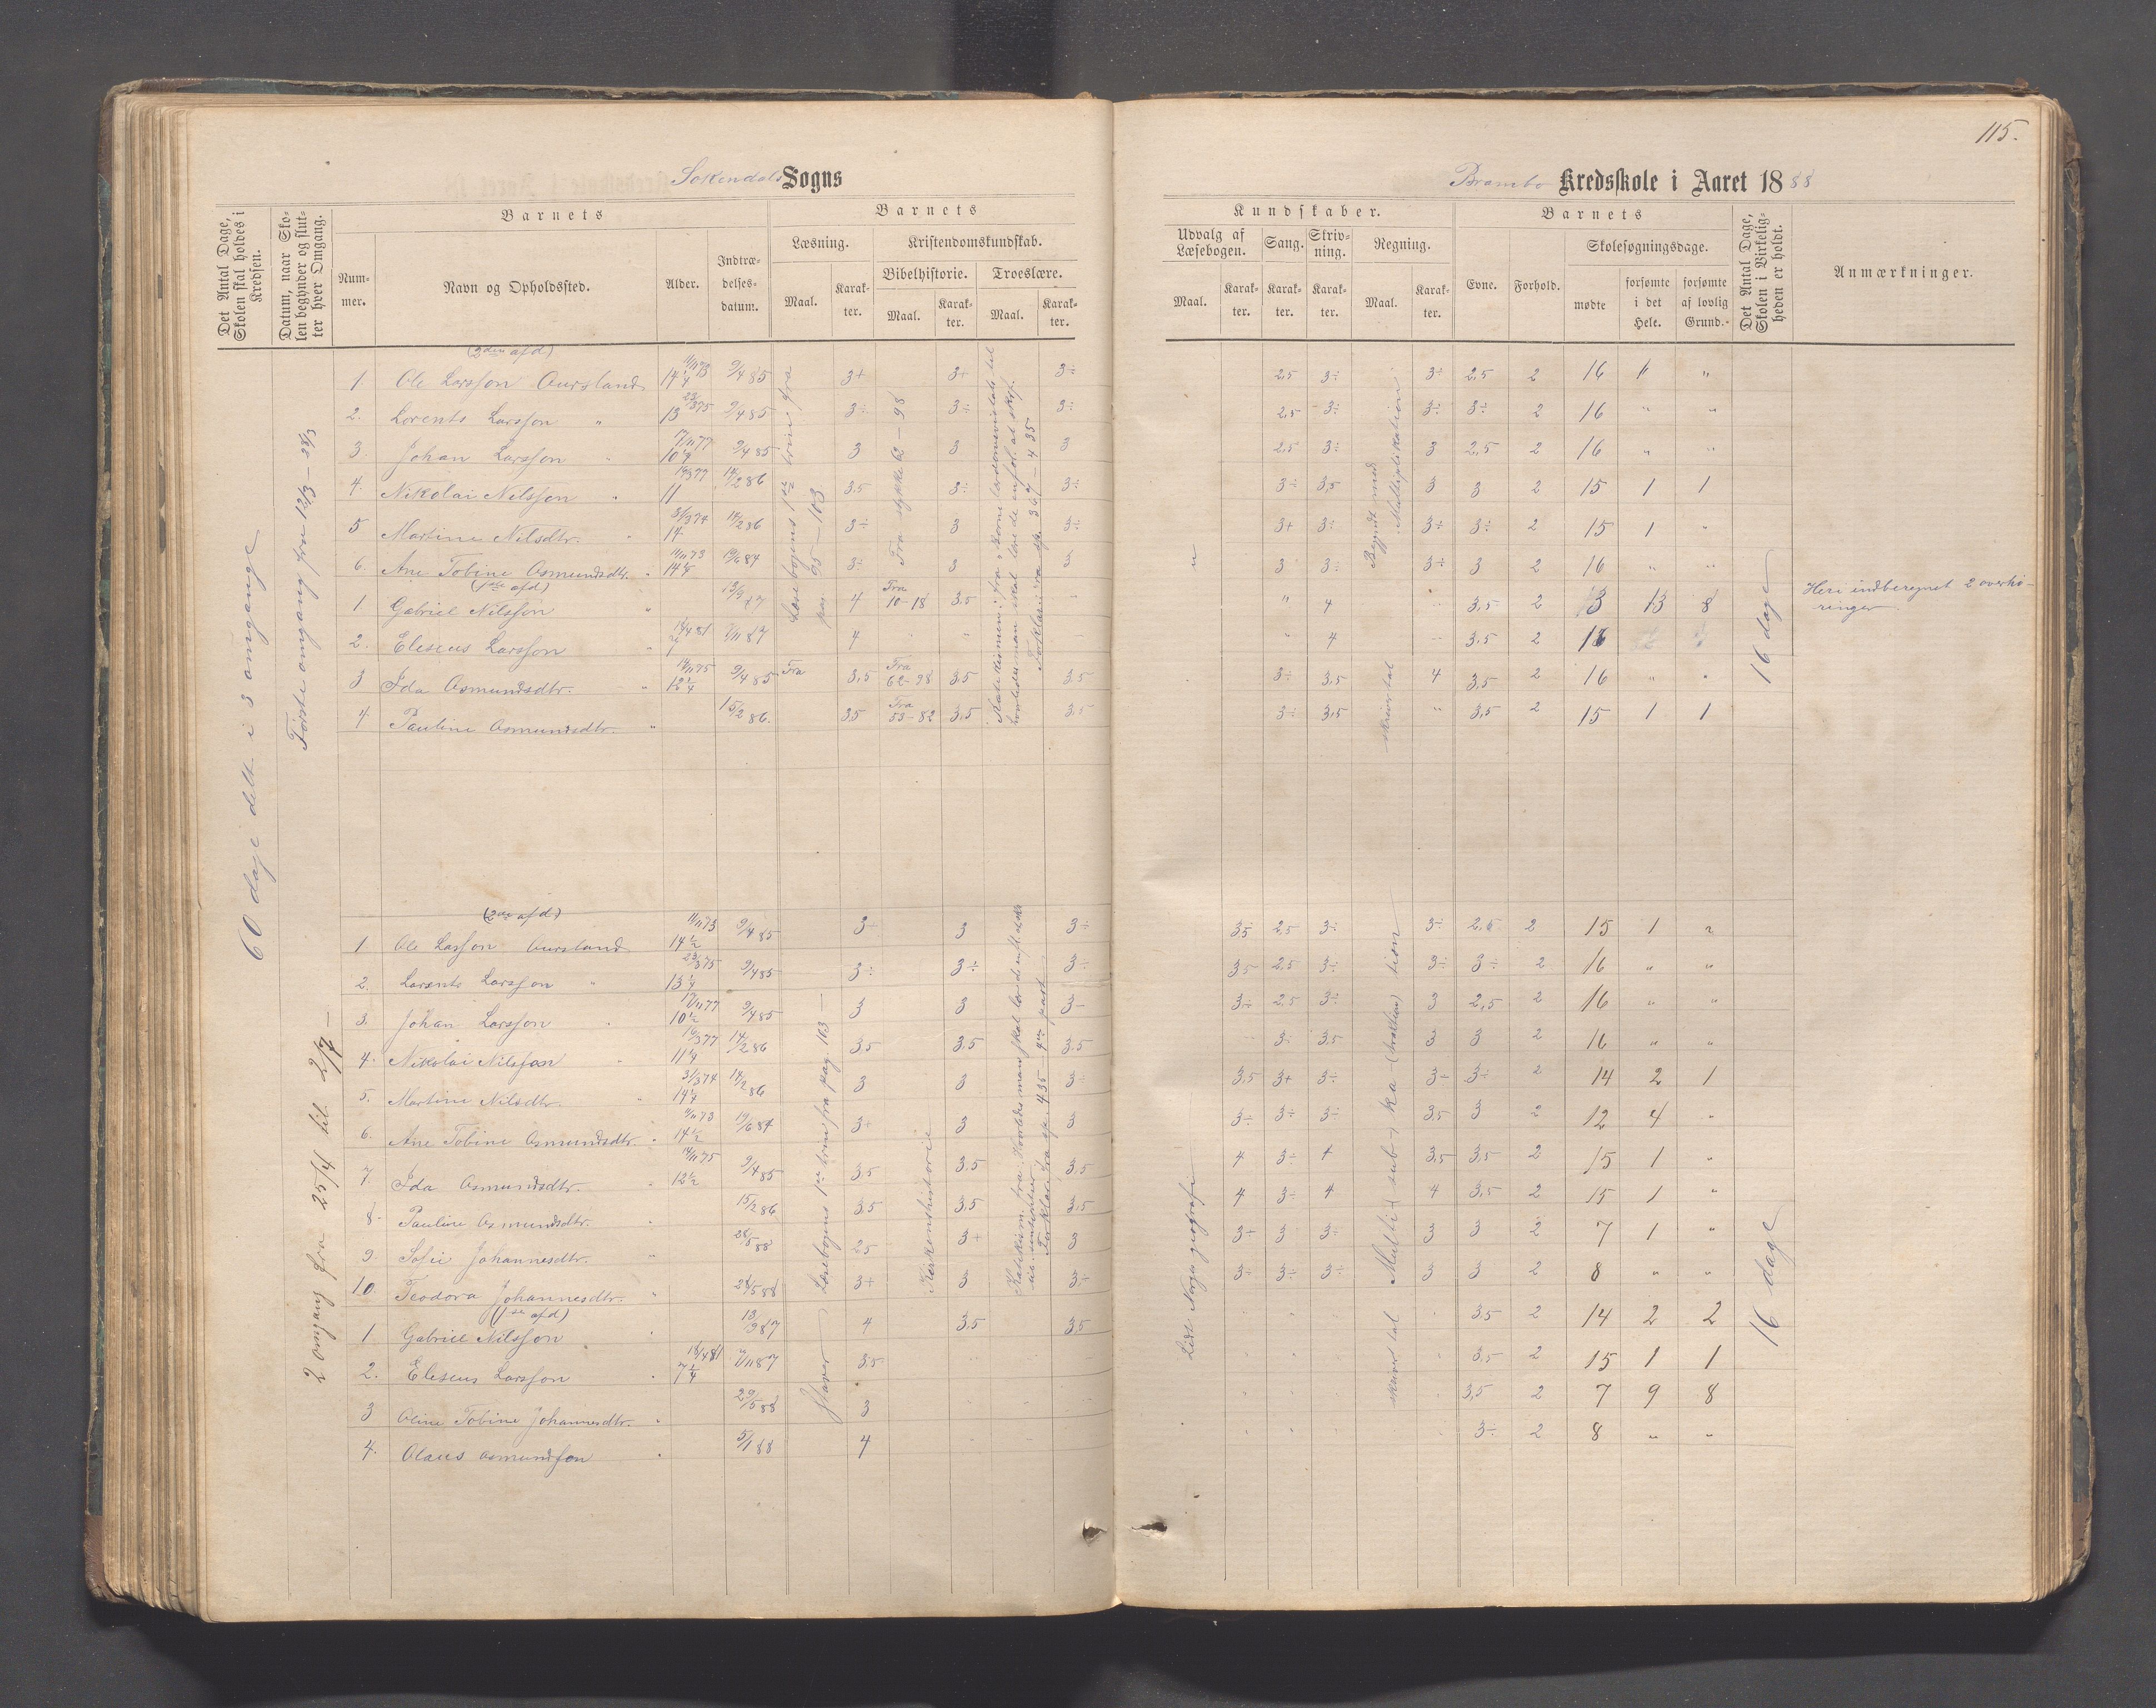 115.
Sokendals Sogns
Brambo Kredsskole i Aaret 1888
Det Antal Dage, Skolen skal holdes i Kredsen.
Datum, naar Skolen begynder og slutter hver Omgang.
Barnets
Nummer.
Navn og Opholdssted.
Alder.
Indtrædelsesdatum.
Barnets
Læsning.
Maal.
Karakter.
Kristendomskundskab.
Bibelhistorie.
Maal.
Karakter.
Troeslære.
Maal.
Karakter.
Kundskaber.
Udvalg af Læsebogen.
Maal.
Karakter.
Sang.
Karakter.
Skrivning.
Karakter.
Regning.
Maal.
Karakter.
Barnets
Evne.
Forhold.
Skolesøgningsdage.
mødte
forsømte i det Hele.
forsømte af lovlig Grund.
Det Antal Dage, Skolen i Virkeligheden er holdt.
Anmærkninger.
60 dage delt i 3 omgange
Første omgang fra 12/3 – 28/3
(2den afd)
1. Ole Larsson Aursland 14 1/4 11/11 73 9/4 85 3+ 3+ 3÷ 2,5 3÷ 3÷ 2,5 2 16 " "
2. Lorents Larsson " 13 23/3 75 9/4 85 3÷ 3÷ 3÷ 2,5 3÷ 3÷ 3÷ 2 16 " "
3. Johan Larsson " 10 1/4 17/11 77 9/4 85 3 3 3 2,5 3÷ 3 2,5 2 16 " "
4. Nikolai Nilsson " 11 16/3 77 14/2 86 3,5 3÷ 3÷ 3÷ 3,5 3 3 2 15 1 1
5 Martine Nilsdtr. " 14 31/3 74 14/2 86 3÷ 3 3÷ 3+ 3÷ 3÷ 3÷ 2 15 1 "
6. Ane Tobine Osmundsdtr. " 14 1/4 11/11 73 19/6 84 3÷ 3 3 3 3÷ 3÷ 3 2 16 " "
(1ste afd)
1 Gabriel Nilsson " 13/9 87 4 Fra 10–18 3,5 " " 4 " 3,5 2 3 13 8
2. Eleseus Larsson " 7 18/4 81 7/11 87 4 " " " " 4 " 3,5 2 16
3 Ida Osmundsdtr. " 12 1/4 14/11 75 9/4 85 Fra 3,5 Fra 62–98 3,5 3,5 3÷ 3,5 4 3,5 2 16 " "
4 Pauline Osmundsdtr. " 15/2 86. 3,5 Fra 53–82 3,5 3,5 3÷ 3,5 " 3,5 2 15 1 1
Læsebogens 1ste trin fra pag. 95–163
Fra stykke 62–98
Forklar. fra sp. 367–435
Begyndt med Multiplikation
skriver tal
16 dage
Heri indberegnet 2 overhøringer
2 omgang fra 25/4 til 2/7 –
(2den afd)
1. Ole Larsson Aursland 14 1/2 11/11 73 9/4 85 3+ 3 3÷ 3,5 2,5 3÷ 3÷ 2,5 2 15 1 "
2. Lorents Larsson " 13 1/4 23/3 75 9/4 85 3÷ 3÷ 3÷ 3,5 2,5 3÷ 3÷ 3÷ 2 16 " "
3. Johan Larsson " 10 1/2 17/11 77 9/4 85 3 3 3– 3÷ 2,5 3÷ 3 2,5 2 16 " "
4. Nikolai Nilsson " 11 1/4 16/3 77 14/2 86 3,5 3,5 3,5 3÷ 3,5 3 3 2 16 " "
5. Martine Nilsdtr. " 14 1/4 31/3 74 14/2 86 3 3 3÷ 3,5 3+ 3÷ 3÷ 3÷ 2 14 2 1
6. Ane Tobine Osmundsdtr. " 14 1/2 11/11 73 19/6 84 3+ 3 3 3÷ 3÷ 3÷ 3,5 3 2 12 4 "
7. Ida Osmundsdtr. " 12 1/2 14/11 75 9/4 85 3,5 3,5 3,5 4 3÷ 4 3,5 3,5 2 15 1 "
8. Pauline Osmundsdtr. " 15/2 86 3,5 3,5 3,5 4 3÷ 4 4 3,5 2 15 1 "
9. Sofie Johannesdtr. " 28/5 88 2,5 3+ 3 3+ 3 3÷ 3 3 2 7 1 "
10. Teodora Johannesdtr. " 28/5 88 3+ 3 3÷ 3÷ 3÷ 3÷ 3 3 2 8 " "
(1ste afd)
1. Gabriel Nilsson " 13/9 87 4 3,5 3,5 3,5 2 14 2 2
2. Eleseus Larsson " 7 1/4 18/4 81 7/11 87 3,5 3,5 2 15 1 1
3 Oline Tobine Johannesdtr. " 29/5 88 3 3,5 2 7 9 8
4. Olaus Osmundsson " 5/1 88 4 3÷ 2 8 " "
Staver
Læsebogens 1ste trin fra pag. 163 –
Kirkenshistorie
Forklar. fra sp. 435 4de part
Lidt Norges geografi
Multi- (sub-traktion) ka-tion
skriver tal
16 dage